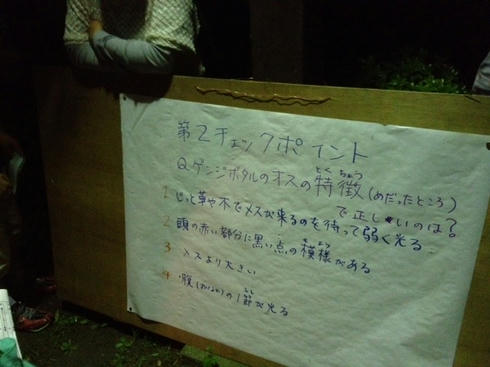 第2チェックポイント
Q.ゲンジボタルのオスの特徴(めだったところ)
とくちょう
で正しいのは?
1 じっと草や木でメスが来るのを待って弱く光る
2 頭の赤い部分に黒い点の模様がある
もよう
3 メスより大きい
4 腹の1節が光る